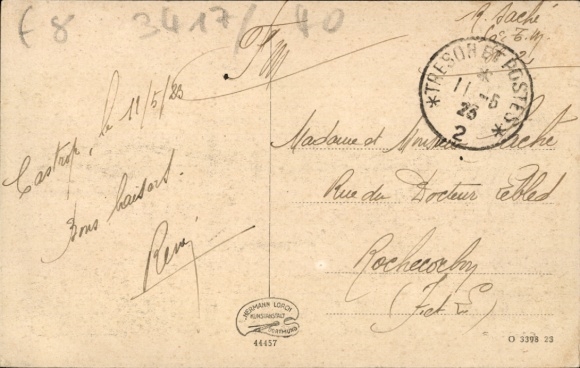 F 8 3417/ 40
F.M
R. Saché
2
TRESOR ET POSTES
11 - 5
23
2
Castrop, le 11/5/23
Bons baisers.
René
Madame et Monsieur Saché
Rue du Docteur Lebled
Rochecorbon
(I. et L.)
HERMANN LORCH
KUNSTANSTALT
DORTMUND
44457
O 3398 23